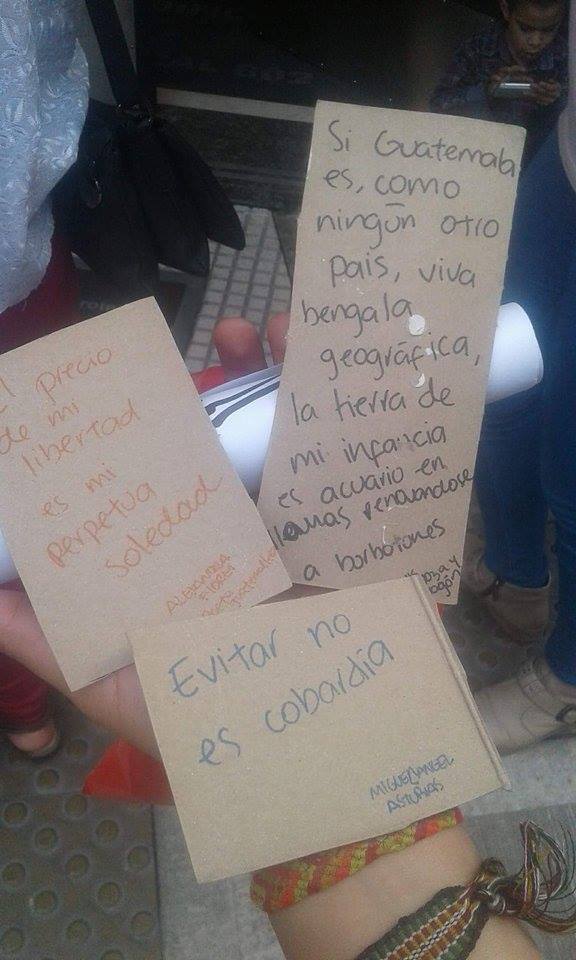 l precio
de mi
libertad
es mi
perpetua
Soledad
ALEJANDRA
Si Guatemala
es, como
ningún otro
país, viva
bengala
geográfica,
la tierra de
mi infancia
es acuario en
renovandose
a borbotones
Evitar no
es cobardía
MIGUEL ANGEL
ASTURIAS